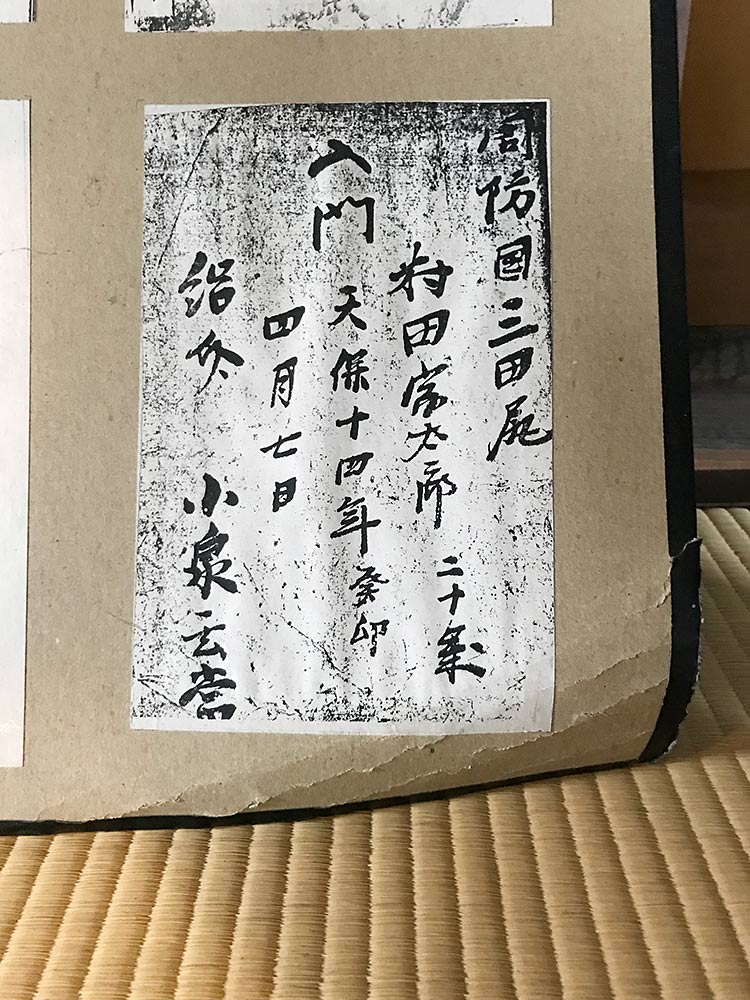 周防國三田尻
村田宗太郎 二十歳
入門 天保十四年癸卯
四月七日
紹介 小泉